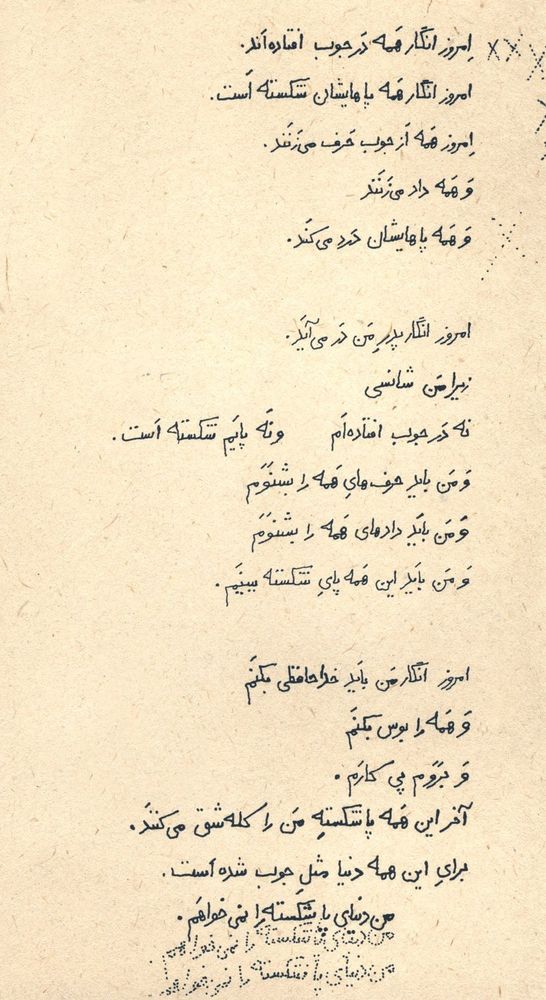 اِمروز انگار هَمه دَر جوب افتاده‌اَند.
امروز انگار همه پاهایشان شکسته اَست.
اِمروز هَمه اَز جوب حَرف می‌زَنَند.
وَ هَمه داد می‌زَنَند
وَ هَمه پاهایشان دَرد می‌کُند.
امروز انگار پدرِ مَن دَر می‌آیَد.
زیرا مَن شانسی
نه دَر جوب افتاده‌اَم وَ نَه پایَم شکسته اَست.
وَ مَن باید حرف‌هایِ هَمه را بشنَوَم
وَ مَن بایَد دادهای هَمه را بشنوَم
وَ مَن بایَد این هَمه پایِ شکسته ببینَم.
امروز انگار مَن بایَد خداحافظی بکنَم
وَ هَمه را بوس بکنَم
وَ بِرَوَم پی کارَم.
آخر این هَمه پا شکستهِ مَن را کله‌شق می‌کنند.
برایِ این همه دنیا مثلِ جوب شده اَست.
من دنیای پا شکسته را نمی‌خواهَم.
من دنیای پا شکسته را نمی‌خواهم
من دنیای پا شکسته را نمی‌خواهم